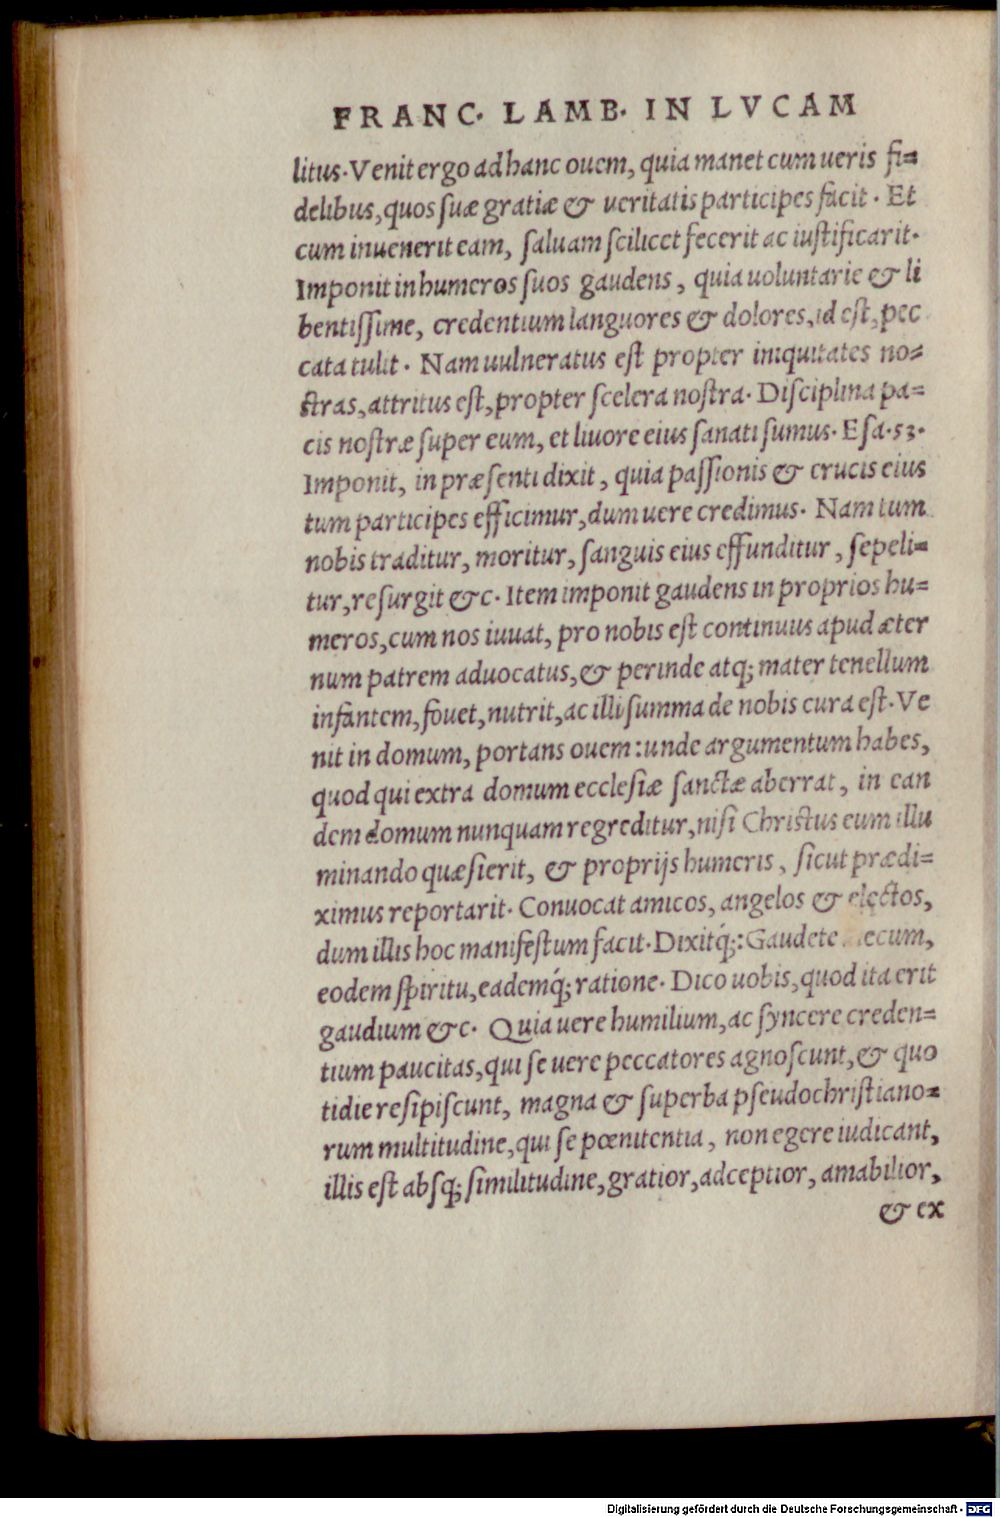 FRANC. LAMB. IN LVCAM
litus. Venit ergo ad hanc ouem, quia manet cum ueris fi=
delibus, quos suæ gratiæ & ueritatis participes facit. Et
cum inuenerit eam, saluam scilicet fecerit ac iustificarit.
Imponit in humeros suos gaudens, quia uoluntarie & li
bentissime, credentium languores & dolores, id est, pec
cata tulit. Nam uulneratus est propter iniquitates no=
stras, attritus est, propter scelera nostra. Disciplina pa=
cis nostræ super eum, et liuore eius sanati sumus. Esa. 53.
Imponit, in præsenti dixit, quia passionis & crucis eius
tum participes efficimur, dum uere credimus. Nam tum
nobis traditur, moritur, sanguis eius effunditur, sepeli=
tur, resurgit &c. Item imponit gaudens in proprios hu=
meros, cum nos iuuat, pro nobis est continuus apud æter
num patrem aduocatus, & perinde atq; mater tenellum
infantem, fouet, nutrit, ac illi summa de nobis cura est. Ve
nit in domum, portans ouem: unde argumentum habes,
quod qui extra domum ecclesiæ sanctæ aberrat, in ean
dem domum nunquam regreditur, nisi Christus eum illu
minando quæsierit, & proprijs humeris, sicut prædi=
ximus reportarit. Conuocat amicos, angelos & electos,
dum illis hoc manifestum facit. Dixitq́;: Gaudete mecum,
eodem spiritu, eademq́; ratione. Dico uobis, quod ita erit
gaudium &c. Quia uere humilium, ac syncere creden=
tium paucitas, qui se uere peccatores agnoscunt, & quo
tidie resipiscunt, magna & superba pseudochristiano=
rum multitudine, qui se pœnitentia, non egere iudicant,
illis est absq; similitudine, gratior, adceptior, amabilior,
& ex
Digitalisierung gefördert durch die Deutsche Forschungsgemeinschaft - DFG